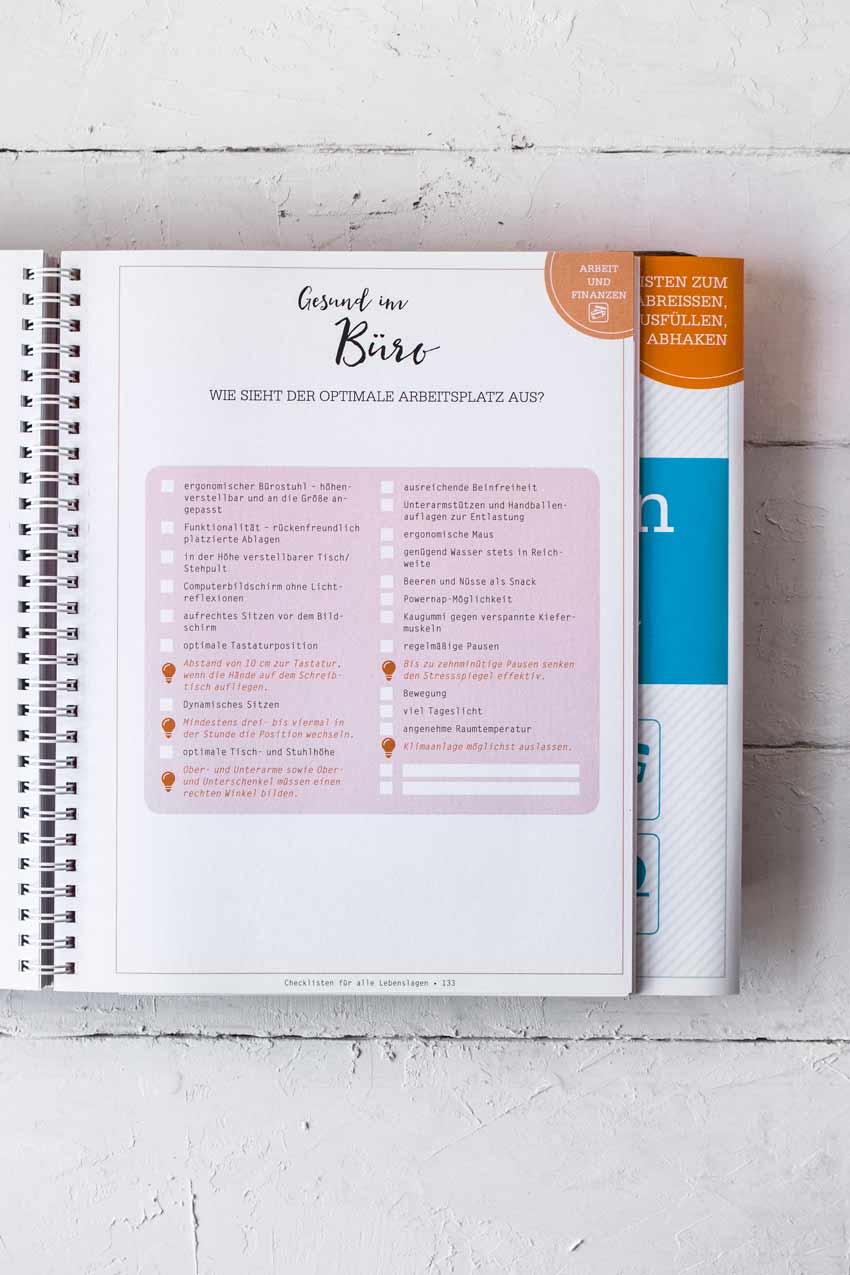 Gesund im
Büro
ARBEIT
UND
FINANZEN
ISTEN ZUM
ABREISSEN,
USFÜLLEN,
ABHAKEN
WIE SIEHT DER OPTIMALE ARBEITSPLATZ AUS?
ergonomischer Bürostuhl – höhen-
verstellbar und an die Größe an-
gepasst
Funktionalität – rückenfreundlich
platzierte Ablagen
in der Höhe verstellbarer Tisch/
Stehpult
Computerbildschirm ohne Licht-
reflexionen
aufrechtes Sitzen vor dem Bild-
schirm
optimale Tastaturposition
Abstand von 10 cm zur Tastatur,
wenn die Hände auf dem Schreib-
tisch aufliegen.
Dynamisches Sitzen
Mindestens drei- bis viermal in
der Stunde die Position wechseln.
optimale Tisch- und Stuhlhöhe
Ober- und Unterarme sowie Ober-
und Unterschenkel müssen einen
rechten Winkel bilden.
ausreichende Beinfreiheit
Unterarmstützen und Handballen-
auflagen zur Entlastung
ergonomische Maus
genügend Wasser stets in Reich-
weite
Beeren und Nüsse als Snack
Powernap-Möglichkeit
Kaugummi gegen verspannte Kiefer-
muskeln
regelmäßige Pausen
Bis zu zehnminütige Pausen senken
den Stressspiegel effektiv.
Bewegung
viel Tageslicht
angenehme Raumtemperatur
Klimaanlage möglichst auslassen.
n
Checklisten für alle Lebenslagen • 133